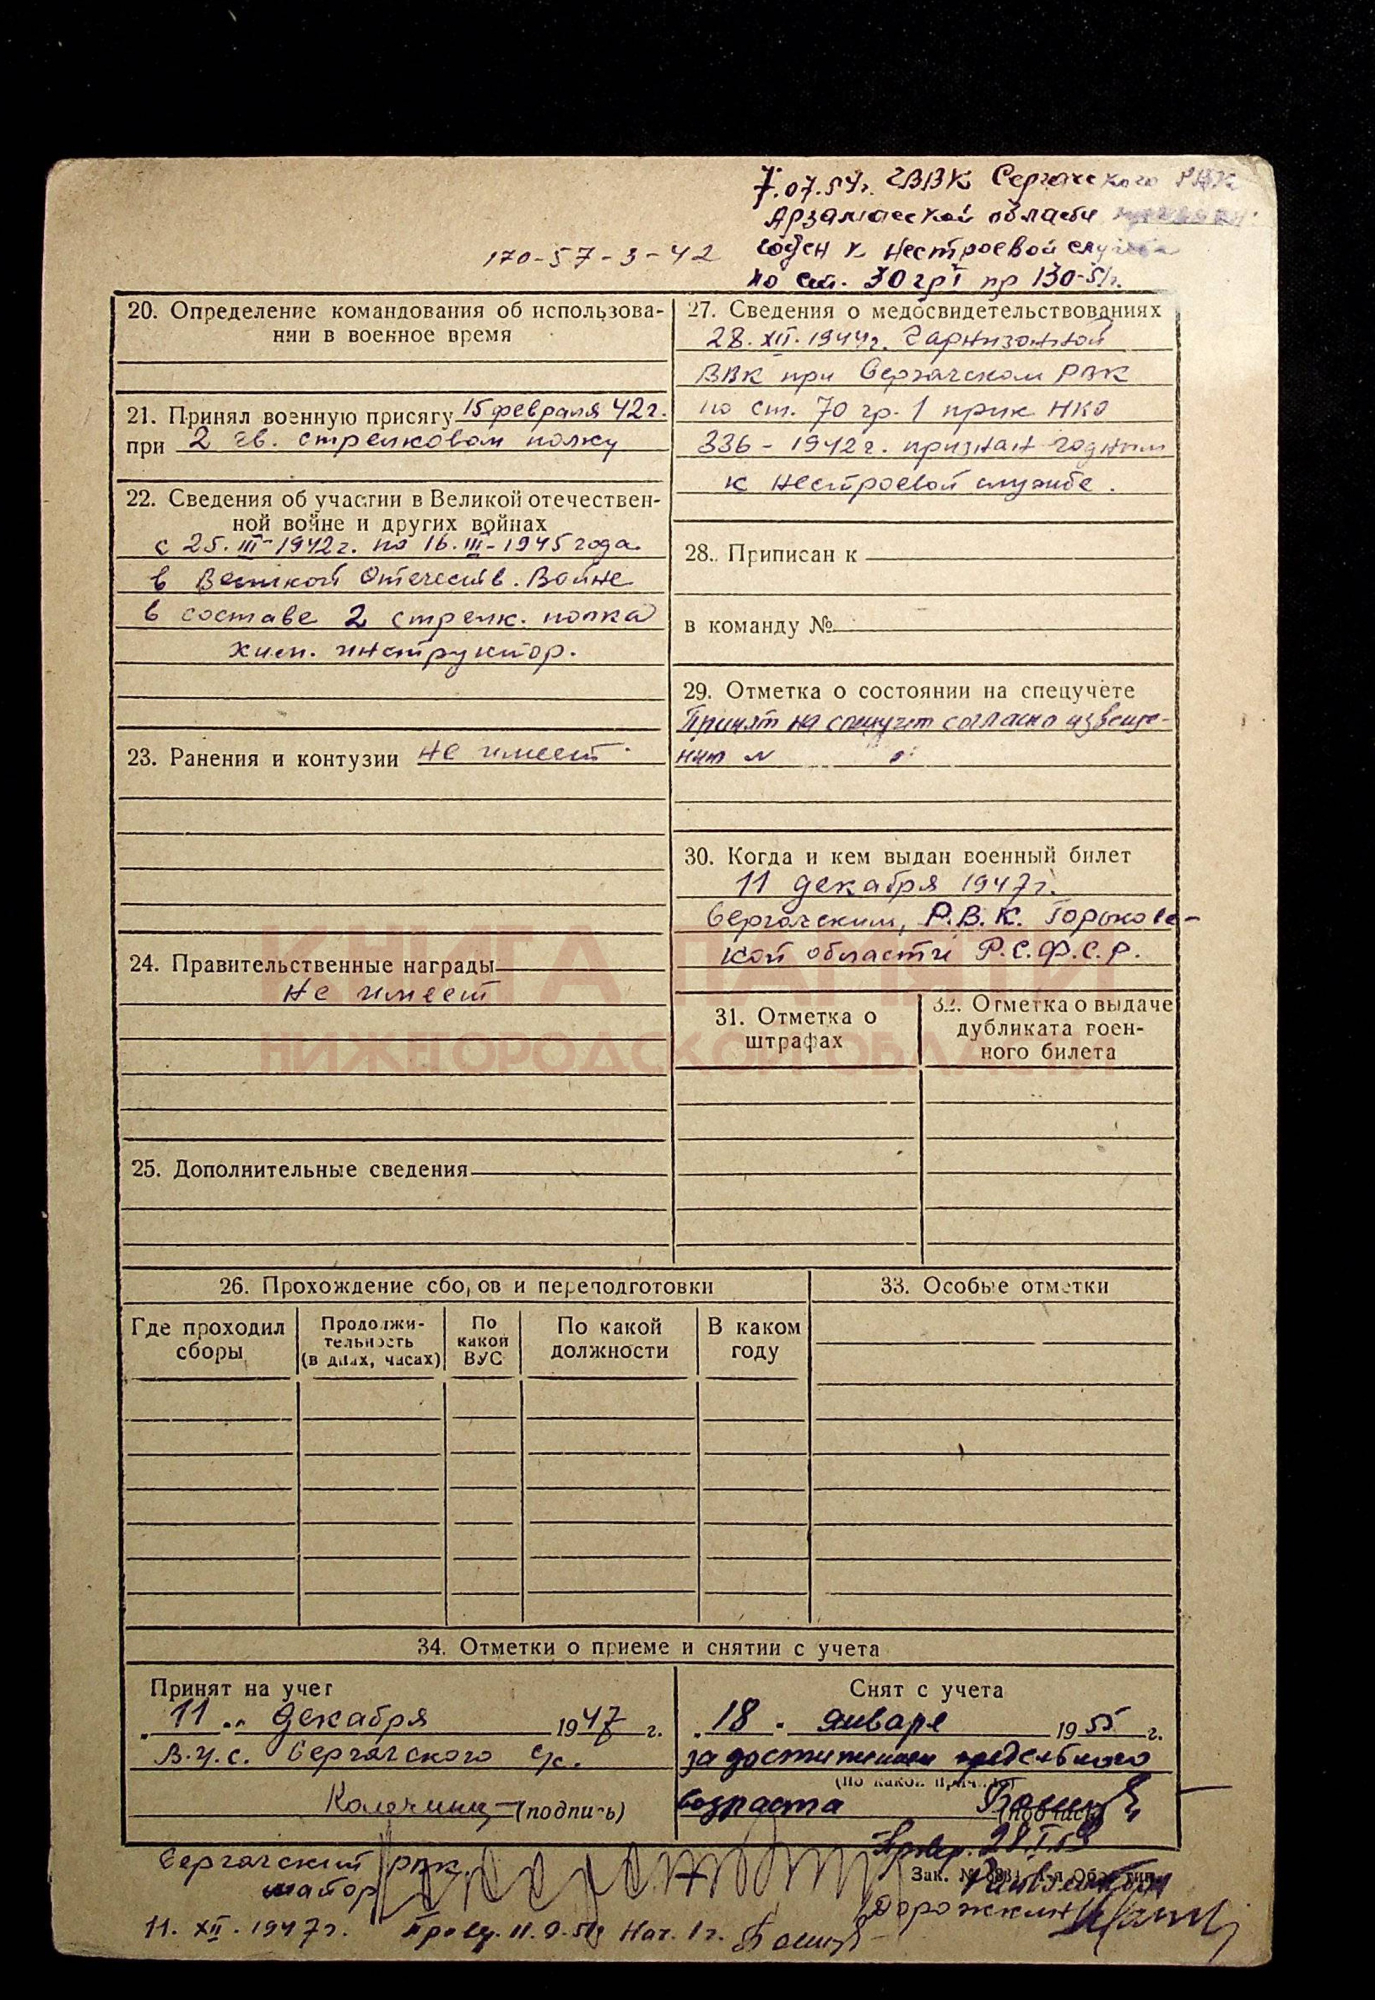 7.07.54г. ГВВК Сергачского РВК
Арзамасской области
годен к нестроевой службе
по ст. 30 гр I пр 130-51г.
170-57-3-42
20. Определение командования об использова-
нии в военное время
21. Принял военную присягу 15 февраля 42г.
при 2 гв. стрелковом полку
22. Сведения об участии в Великой отечествен-
ной войне и других войнах
с 25.III-1942г. по 16.III-1945 года
в Великой Отечеств. Войне
в составе 2 стрелк. полка
хим. инструктор.
23. Ранения и контузии не имеет
24. Правительственные награды
не имеет
25. Дополнительные сведения
27. Сведения о медосвидетельствованиях
28.XII.1944г. Гарнизонной
ВВК при Сергачском РВК
по ст. 70 гр. 1 прик. НКО
336-1942г. признан годным
к нестроевой службе.
28. Приписан к
в команду №
29. Отметка о состоянии на спецучете
Принят на спецучет согласно извеще-
ния N
30. Когда и кем выдан военный билет
11 декабря 1947г.
Сергачским, Р.В.К. Горьковс-
кой области Р.С.Ф.С.Р.
31. Отметка о
штрафах
32. Отметка о выдаче
дубликата воен-
ного билета
КНИГА ПАМЯТИ
НИЖЕГОРОДСКОЙ ОБЛАСТИ
26. Прохождение сборов и переподготовки
Где проходил
сборы
Продолжи-
тельность
(в днях, часах)
По
какой
ВУС
По какой
должности
В каком
году
33. Особые отметки
34. Отметки о приеме и снятии с учета
Принят на учет
"11" декабря 1947 г.
В.У.С. Сергачского с/с.
(подпись)
Снят с учета
"18" января 1955 г.
за достижением предельного
(по какой причине)
возраста
(подпись)
Зак. №
Сергачский РВК.
майор
11.XII.1947г.
Дорожкин